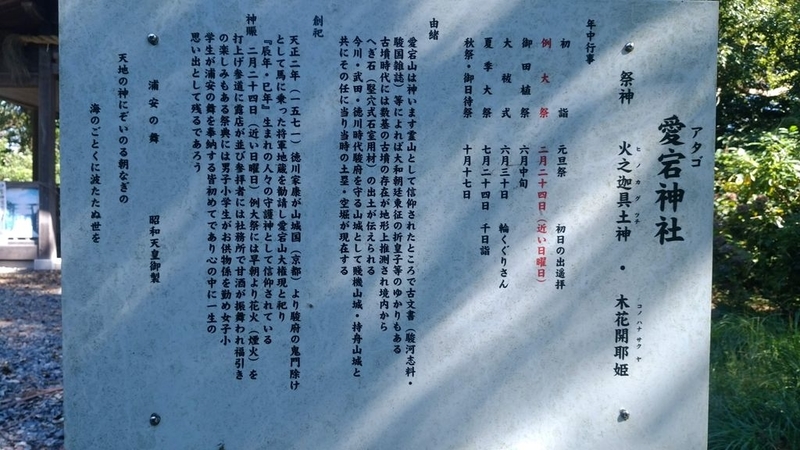 アタゴ
愛宕神社
祭神 火之迦具土神 ・ 木花開耶姫
ヒノカグツチ コノハナサクヤ
年中行事
初詣 元旦祭 初日の出遥拝
例大祭 二月二十四日(近い日曜日)
御田植祭 六月中旬
大祓式 六月三十日 輪くぐりさん
夏季大祭 七月二十四日 千日詣
秋祭・御日待祭 十月十七日
由緒
愛宕山は神います霊山として信仰されたところで古文書(駿河志料・
駿国雑誌)等によれば大和朝廷東征の折皇子等のゆかりもある
古墳時代には数基の古墳の存在が地形上推測され境内から
へぎ石(竪穴式石室用材)の出土が伝えられる
今川・武田・徳川時代駿府を守る山城として賤機山城・持舟山城と
共にその任に当り当時の土塁・空堀が現在する
創祀
天正二年(一五七一)徳川家康が山城国(京都)より駿府の鬼門除け
として馬に乗った将軍地蔵を勧請し愛宕山大権現と祀り
『辰年・巳年』生まれの人々の守護神として信仰されている
神賑 二月二十四日(近い日曜日)例大祭には早朝より花火(煙火)を
打上げ参道に露店が並び参拝者には社務所で甘酒が振舞われ福引き
の楽しみもある祭典には男子小学生がお供物係を勤め女子小
学生が浦安の舞を奉納する皆初めてであり心の中に一生の
思い出として残るであろう
浦安の舞 昭和天皇御製
天地の神にぞいのる朝なぎの
海のごとくに波たたぬ世を